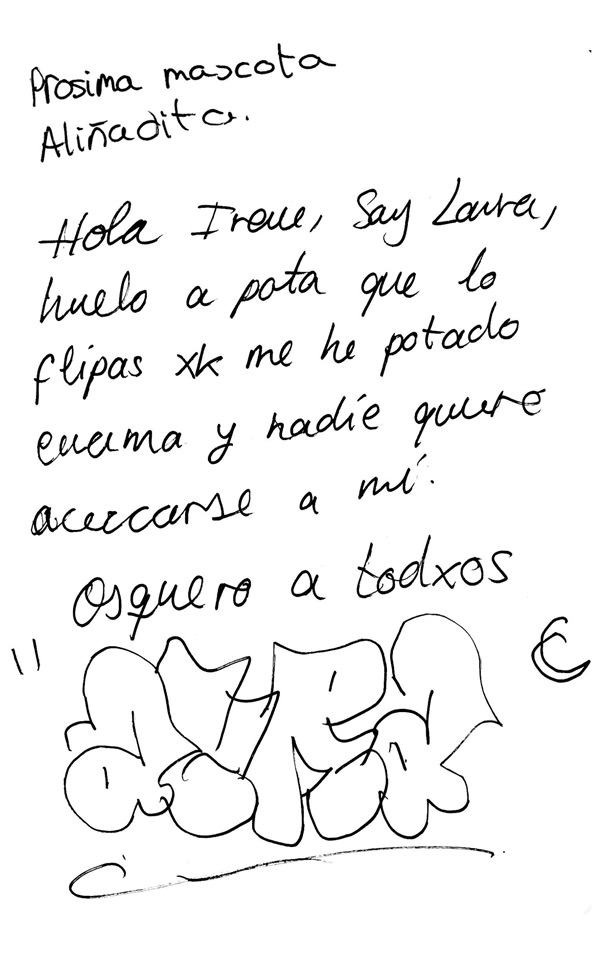 Prosima mascota
Aliñadita.
Hola Irene, Say Laura,
huelo a pota que lo
flipas xk me he potado
encima y nadie quiere
acercarse a mí.
Osquero a todxos